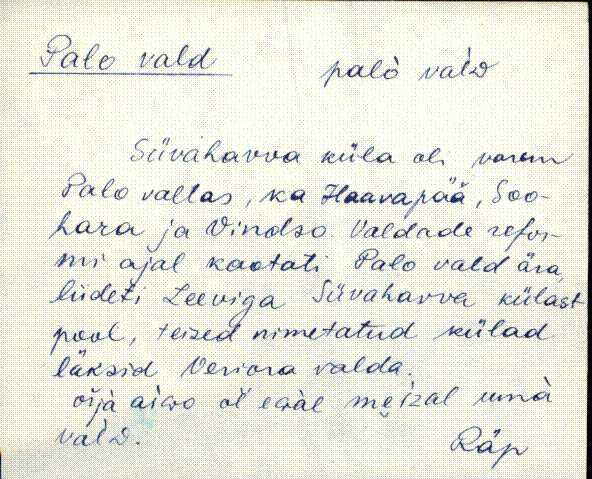 Palo vald
palò vaĺd
Süvahavva küla oli varem
Palo vallas, ka Haavapää, Soo-
hara ja Vindso. Valdade refor-
mi ajal kaotati Palo vald ära,
liideti Leeviga Süvahavva külast
pool, teised nimetatud külad
läksid Veriora valda.
vaĺd.
Räp